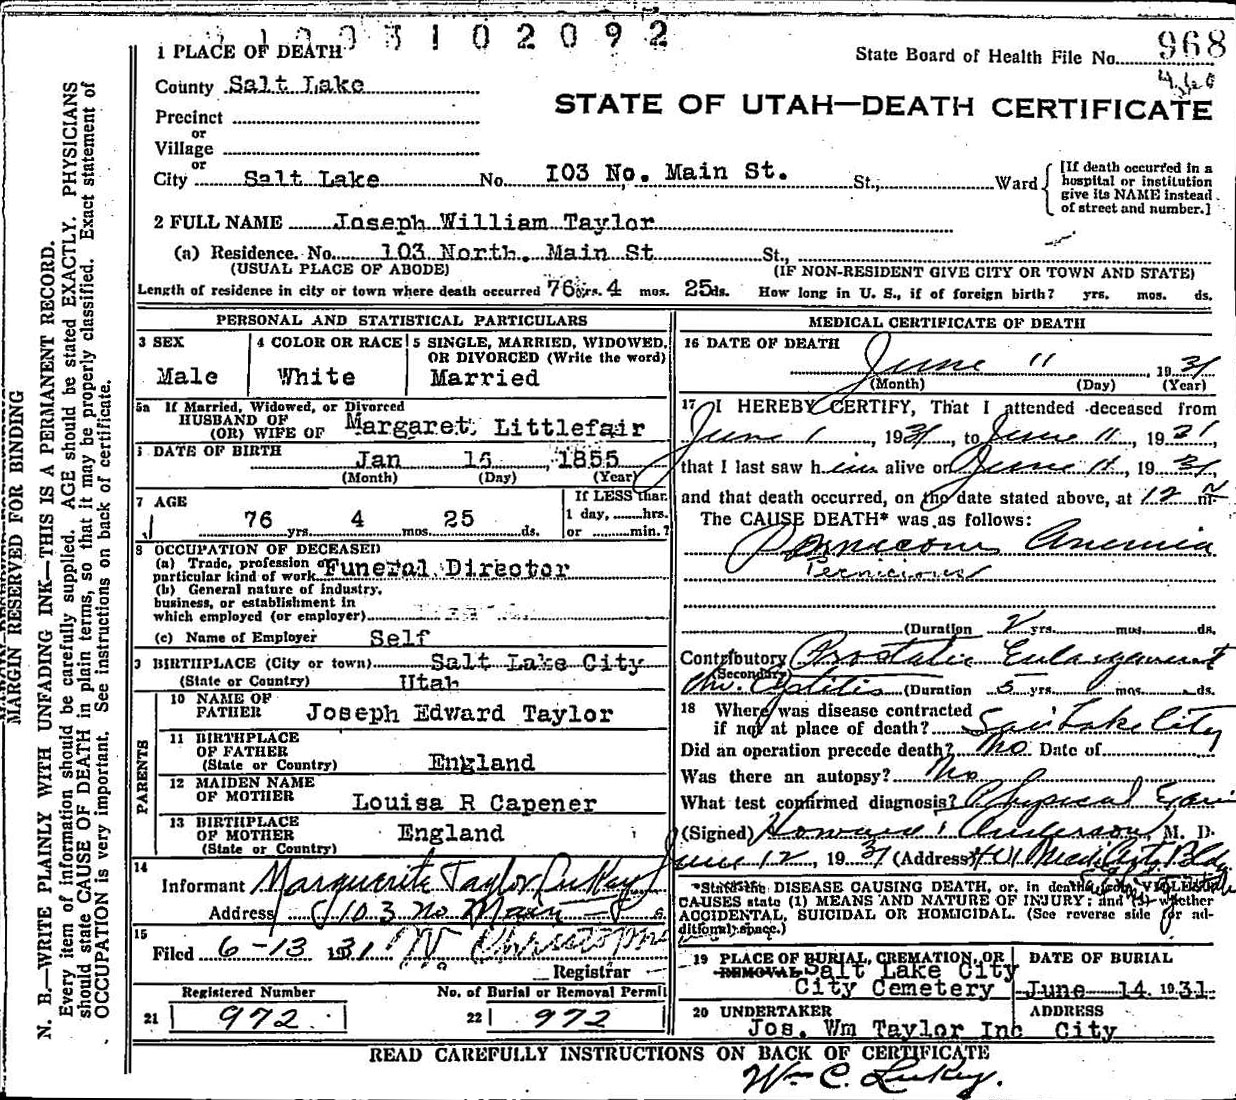 3 1 0 2 0 9 2
1 PLACE OF DEATH
State Board of Health File No. 968
County Salt Lake
STATE OF UTAH—DEATH CERTIFICATE
Precinct
or
Village
or
City Salt Lake No. 103 No. Main St. St., Ward
[If death occurred in a hospital or institution give its NAME instead of street and number.]
2 FULL NAME Joseph William Taylor
(a) Residence. No. 103 North. Main St St.,
(USUAL PLACE OF ABODE) (IF NON-RESIDENT GIVE CITY OR TOWN AND STATE)
Length of residence in city or town where death occurred 76 yrs. 4 mos. 25 ds. How long in U. S., if of foreign birth? yrs. mos. ds.
PERSONAL AND STATISTICAL PARTICULARS
3 SEX
Male
4 COLOR OR RACE
White
5 SINGLE, MARRIED, WIDOWED, OR DIVORCED (Write the word)
Married
5a If Married, Widowed, or Divorced
HUSBAND OF
(OR) WIFE OF Margaret Littlefair
6 DATE OF BIRTH
Jan 16, 1855
(Month) (Day) (Year)
7 AGE
76 yrs. 4 mos. 25 ds.
If LESS than
1 day, hrs.
or min.?
8 OCCUPATION OF DECEASED
(a) Trade, profession or
particular kind of work Funeral Director
(b) General nature of industry,
business, or establishment in
which employed (or employer)
(c) Name of Employer Self
9 BIRTHPLACE (City or town) Salt Lake City
(State or Country) Utah
PARENTS
10 NAME OF
FATHER Joseph Edward Taylor
11 BIRTHPLACE
OF FATHER
(State or Country) England
12 MAIDEN NAME
OF MOTHER Louisa R Capener
13 BIRTHPLACE
OF MOTHER England
(State or Country)
14
Informant Marguerite Taylor Lukey
Address 103 No Main St
15
Filed 6-13 1931
Registrar
Registered Number
21 972
No. of Burial or Removal Permit
22 972
MEDICAL CERTIFICATE OF DEATH
16 DATE OF DEATH
June 11, 1931
(Month) (Day) (Year)
17 I HEREBY CERTIFY, That I attended deceased from
June 1, 1931, to June 11, 1931,
that I last saw him alive on June 11, 1931,
and that death occurred, on the date stated above, at 12 m
The CAUSE DEATH* was as follows:
Pernicous Anemia
Pernicious
(Duration 2 yrs. mos. ds.
Contributory Prostatic Enlargement
(Secondary)
Chr. Cystitis (Duration 5 yrs. mos. ds.
18 Where was disease contracted
if not at place of death? Salt Lake City
Did an operation precede death? No Date of
Was there an autopsy? No
What test confirmed diagnosis? Physical Exam
(Signed) Howard Anderson, M. D.
June 12, 1931 (Address)
*State the DISEASE CAUSING DEATH, or, in deaths from VIOLENT
CAUSES state (1) MEANS AND NATURE OF INJURY; and (2) whether
ACCIDENTAL, SUICIDAL OR HOMICIDAL. (See reverse side for ad-
ditional space.)
19 PLACE OF BURIAL, CREMATION, OR
REMOVAL Salt Lake City
City Cemetery
DATE OF BURIAL
June 14 1931
20 UNDERTAKER
Jos. Wm Taylor Inc
ADDRESS
City
READ CAREFULLY INSTRUCTIONS ON BACK OF CERTIFICATE
Wm C. Lukey.
MARGIN RESERVED FOR BINDING
N. B.—WRITE PLAINLY WITH UNFADING INK—THIS IS A PERMANENT RECORD.
Every item of information should be carefully supplied. AGE should be stated EXACTLY. PHYSICIANS
should state CAUSE OF DEATH in plain terms, so that it may be properly classified. Exact statement of
OCCUPATION is very important. See instructions on back of certificate.